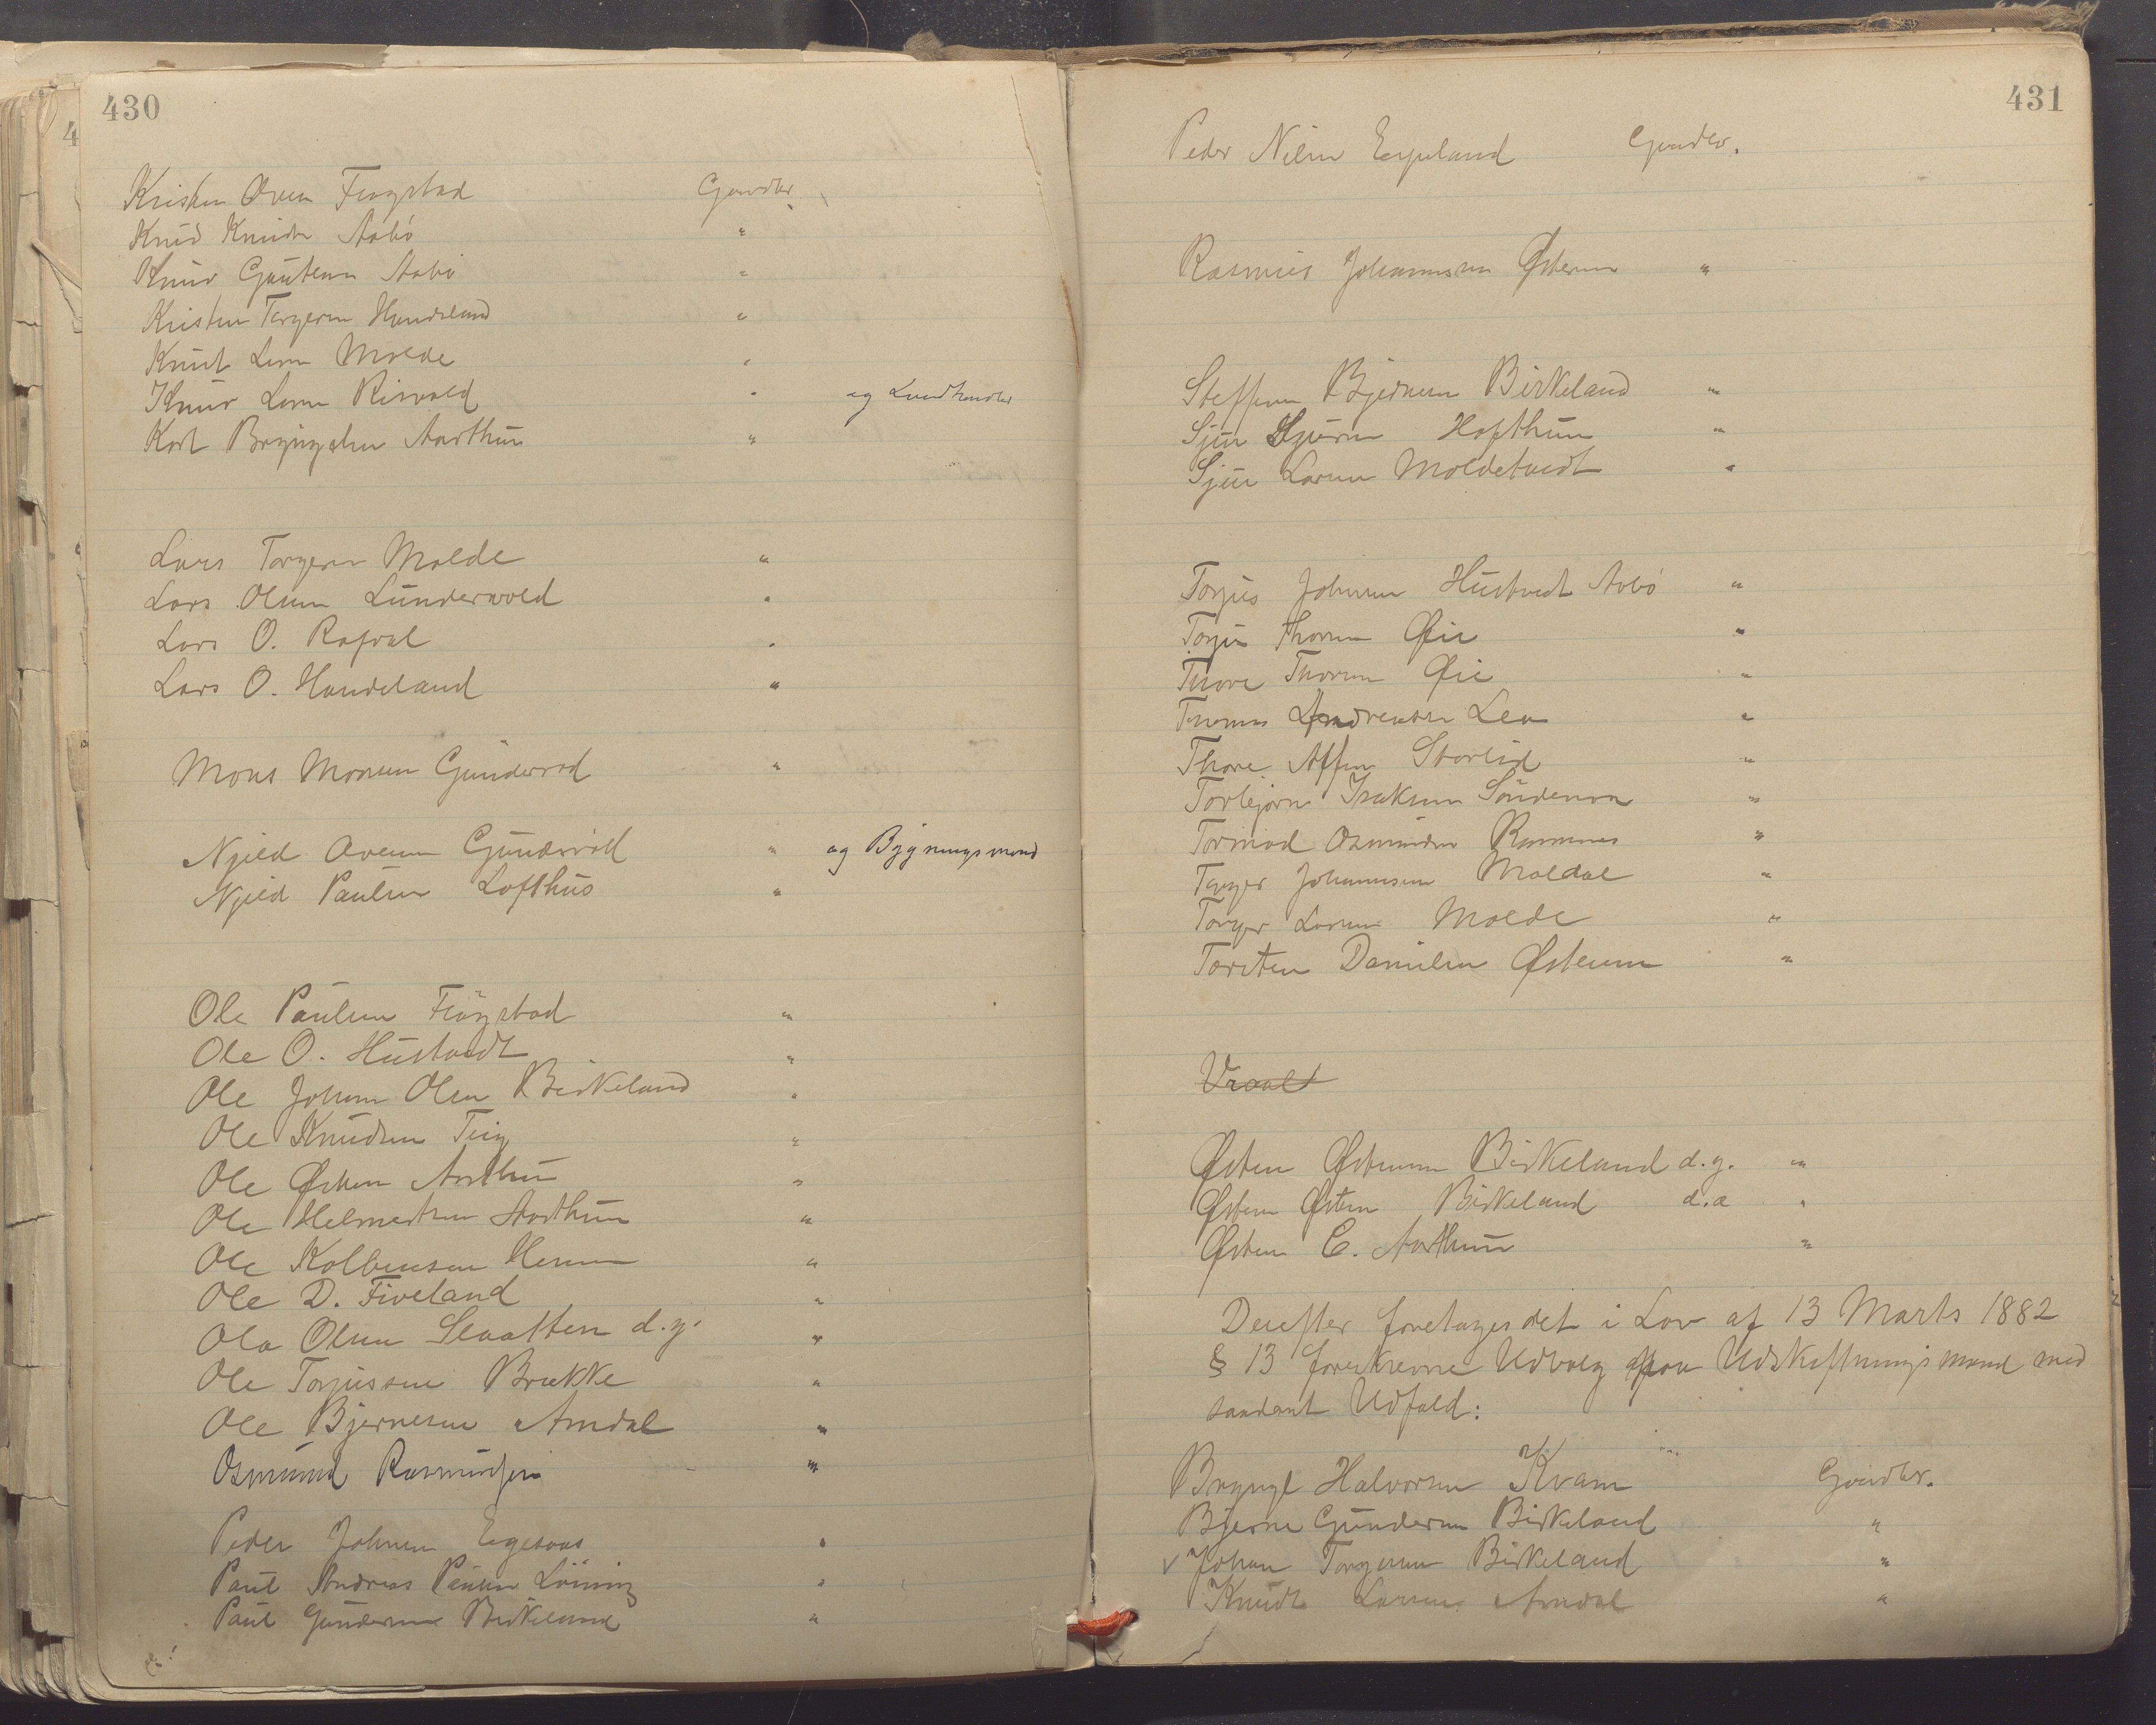 430
Kristen Oven Fiogstad Gaardbr.
Knud Knudsen Aabö "
Knud Gautesen Aabö "
Kristen Torgersen Handeland "
Knut Larsen Molde "
Knud Larsen Risvold " og Landhandler
Karl Bryngelsen Aarthun "
Lars Torgersen Molde "
Lars Olsen Lunderwold "
Lars O. "
Lars O. Handeland "
Mons Monsen Gundersrod "
Njeld Ovesen Gundersröd " og Bygningsmand
Njeld Paulsen Lofthus "
Ole Paulsen Fiögstad "
Ole O. Hustvedt "
Ole Johan Olsen Birkeland "
Ole Knudsen Teig "
Ole Østensen Aarthun "
Ole Helmertsen Aarthun "
Ole Kolbensen "
Ole D. Fiveland "
Ola Olsen Slaatten d.y. "
Ole Torjussen Brekke "
Ole Bjernesen Amdal "
Osmund Rasmussen "
Peder Johnsen "
Paul Andreas Paulsen Löining "
Paul Gundersen Birkeland "
431
Peder Nilsen Espeland Gaardbr.
Rasmus Johannesen Østenen "
Steffen Bjernesen Birkeland "
Sjur Sjursen Hofthun "
Sjur Larsen Moldetvedt "
Torjus Johnsen Hustvedt Aabö "
Torjus Thorsen Øie "
Thore Thorsen Øie "
Thomas Andreasen Lea "
Thore Storlid "
Torbjørn Isaksen Söndenaa "
Tormod Osmundsen "
Torger Johannesen Moldal "
Torger Larsen Molde "
Torsten Danielsen Østenen "
Vraal
Østen Østensen Birkeland d.y. "
Østen Østensen Birkeland d.æ "
Østen E. Aarthun "
Derefter foretages det i Lov af 13 Marts 1882
§ 13 foreskrevne Udvalg paa Udskiftningsmænd med
saadant Udfald:
Bryngel Halvorsen Kvam Gaardbr.
Bjerne Gundersen Birkeland "
v Johan Torgersen Birkeland "
Knudt Larsen Amdal "